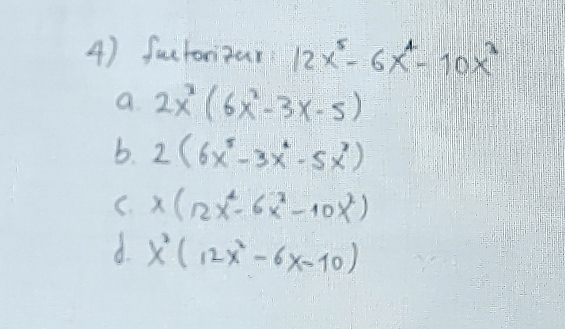 4) factorizar: 12x⁵ - 6x⁴ - 10x³
a. 2x³ (6x² - 3x - 5)
b. 2 (6x⁵ - 3x⁴ - 5x³)
c. x (12x⁴ - 6x³ - 10x²)
d. x³ (12x² - 6x - 10)